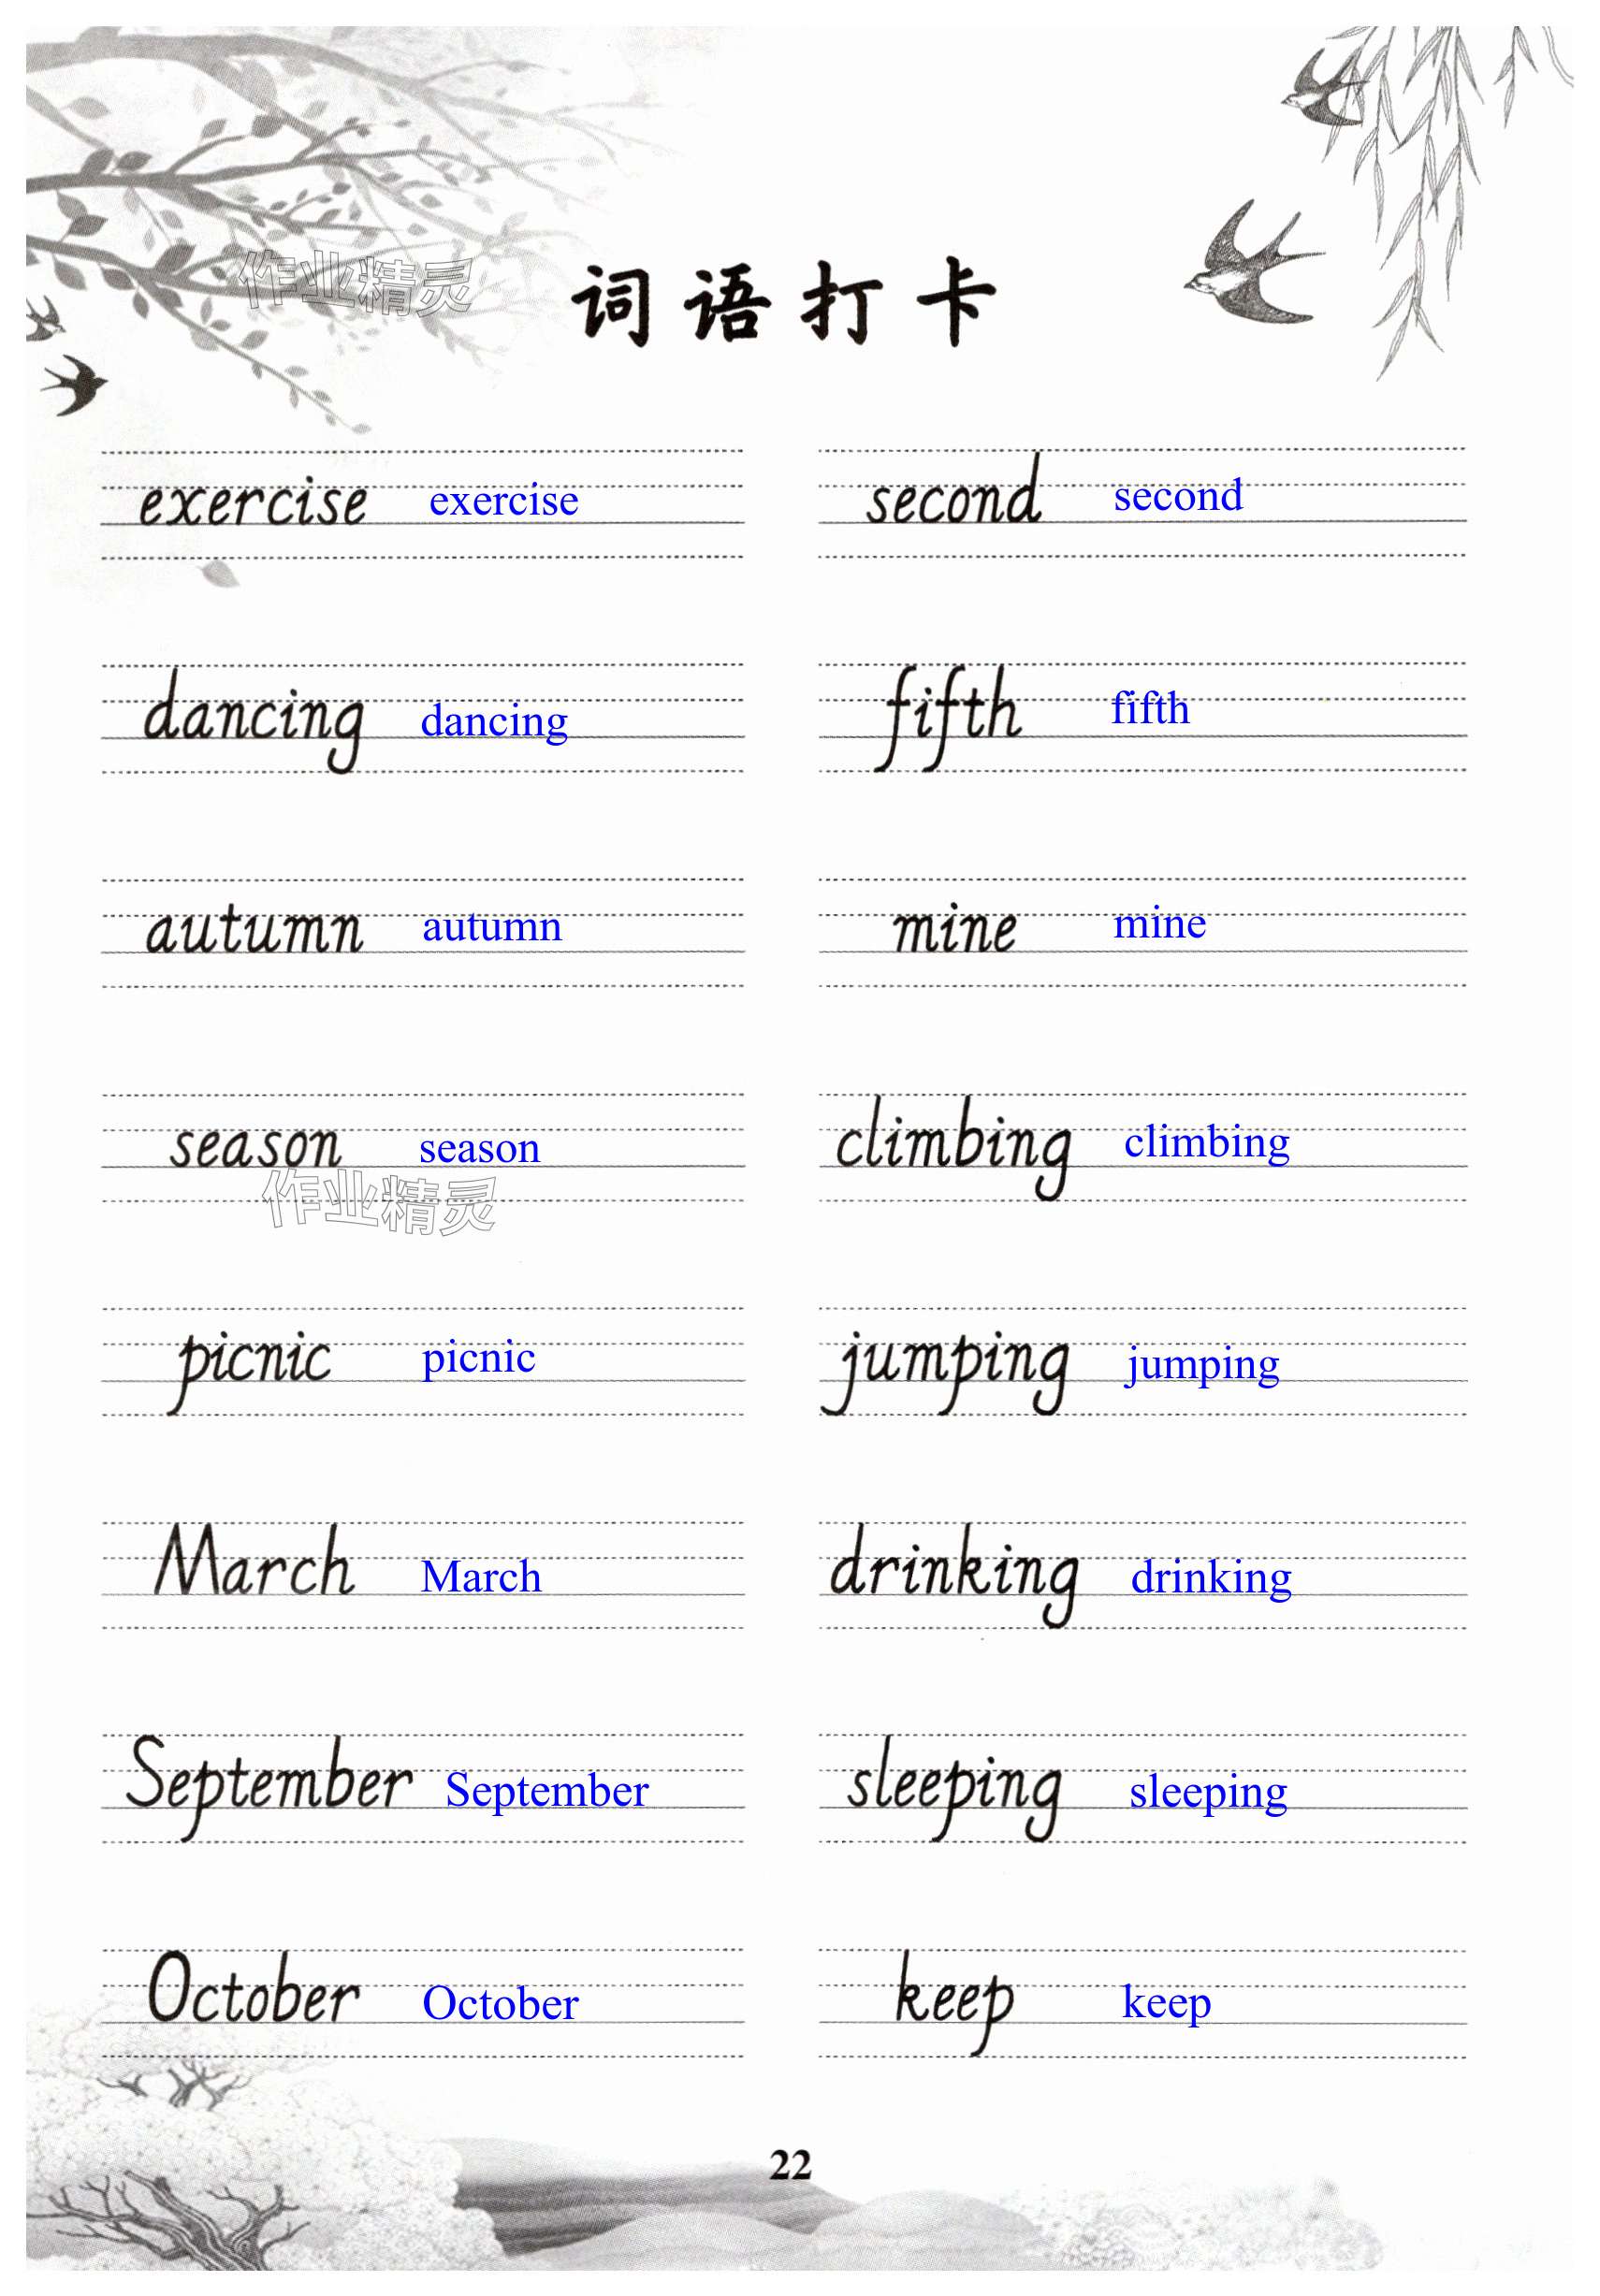 作业精灵
词语打卡
exercise exercise second second
dancing dancing fifth fifth
autumn autumn mine mine
season season climbing climbing
作业精灵
picnic picnic jumping jumping
March March drinking drinking
September September sleeping sleeping
October October keep keep
22